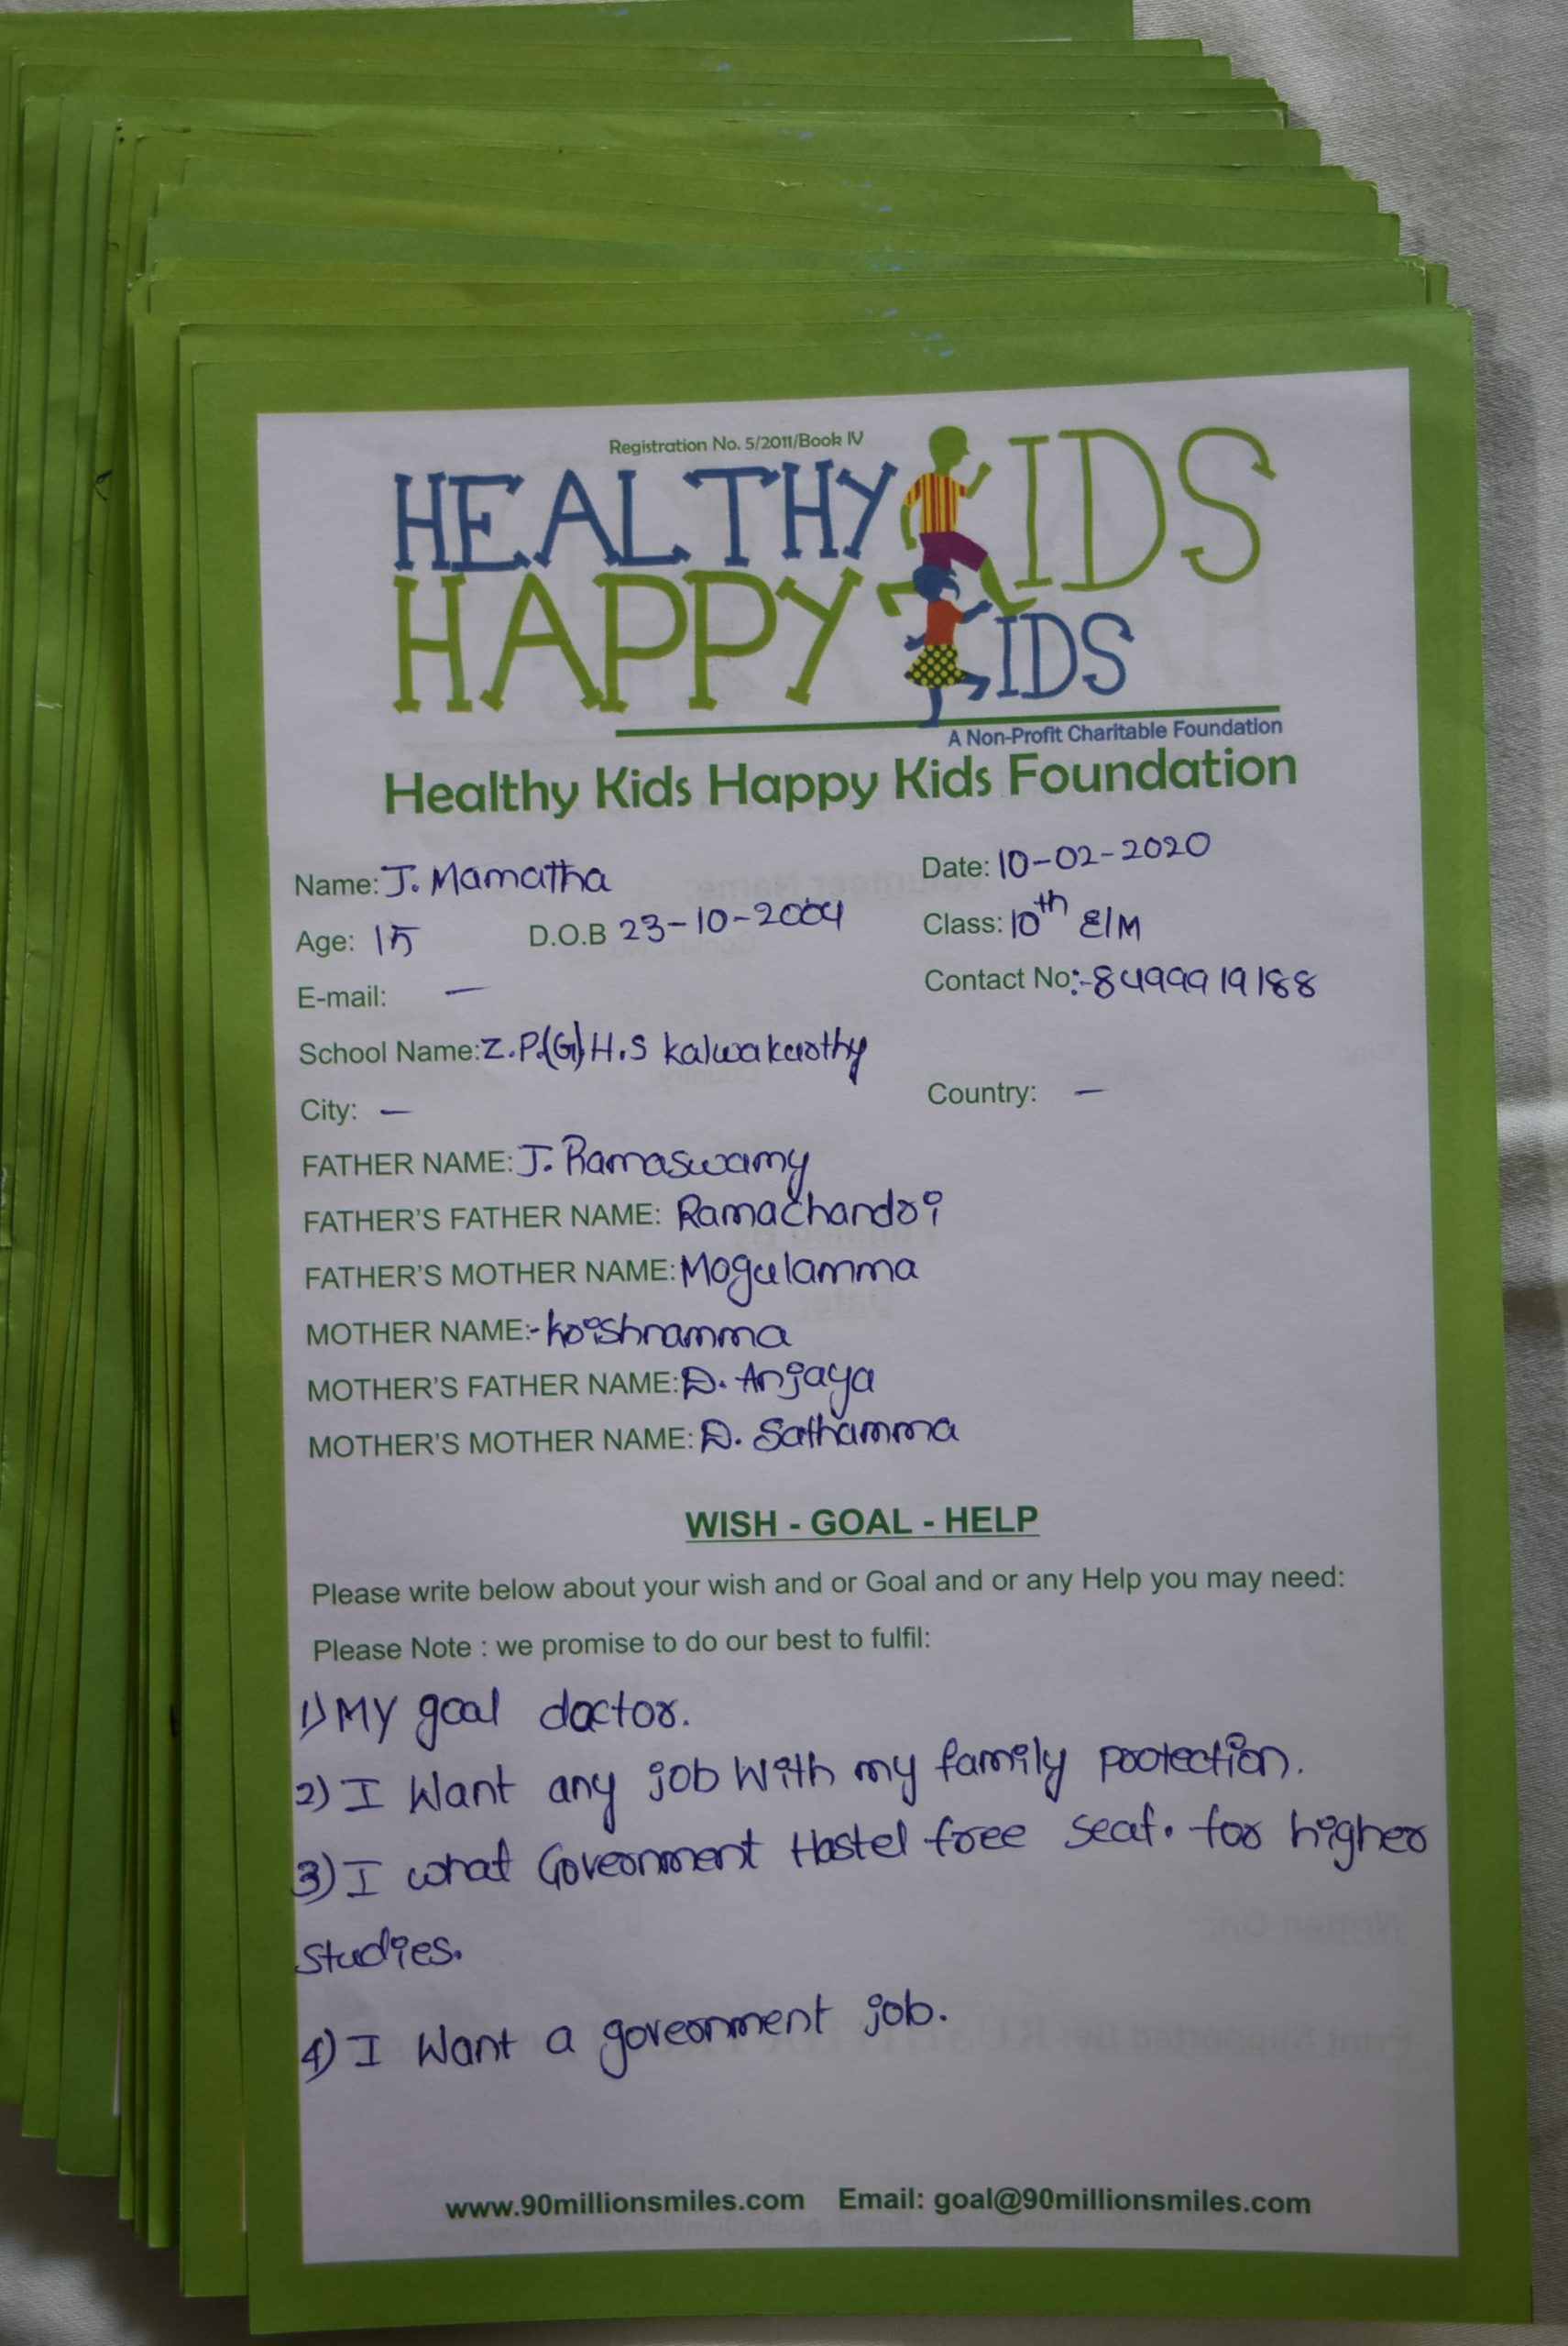 Registration No. 5/2011/Book IV
HEALTHY KIDS
HAPPY KIDS
A Non-Profit Charitable Foundation
Healthy Kids Happy Kids Foundation
Name: J. Mamatha Date: 10-02-2020
Age: 15 D.O.B 23-10-2004 Class: 10th E/M
E-mail: — Contact No:- 8499919188
School Name: Z.P.(G).H.S kalwakurthy
City: — Country: —
FATHER NAME: J. Ramaswamy
FATHER'S FATHER NAME: Ramachandri
FATHER'S MOTHER NAME: Mogulamma
MOTHER NAME:- krishnamma
MOTHER'S FATHER NAME: D. Anjaya
MOTHER'S MOTHER NAME: D. Sathamma
WISH - GOAL - HELP
Please write below about your wish and or Goal and or any Help you may need:
Please Note : we promise to do our best to fulfil:
1) MY goal doctor.
2) I Want any job With my family protection.
3) I what Government Hostel free seat. for higher
studies.
4) I Want a government job.
www.90millionsmiles.com Email: goal@90millionsmiles.com